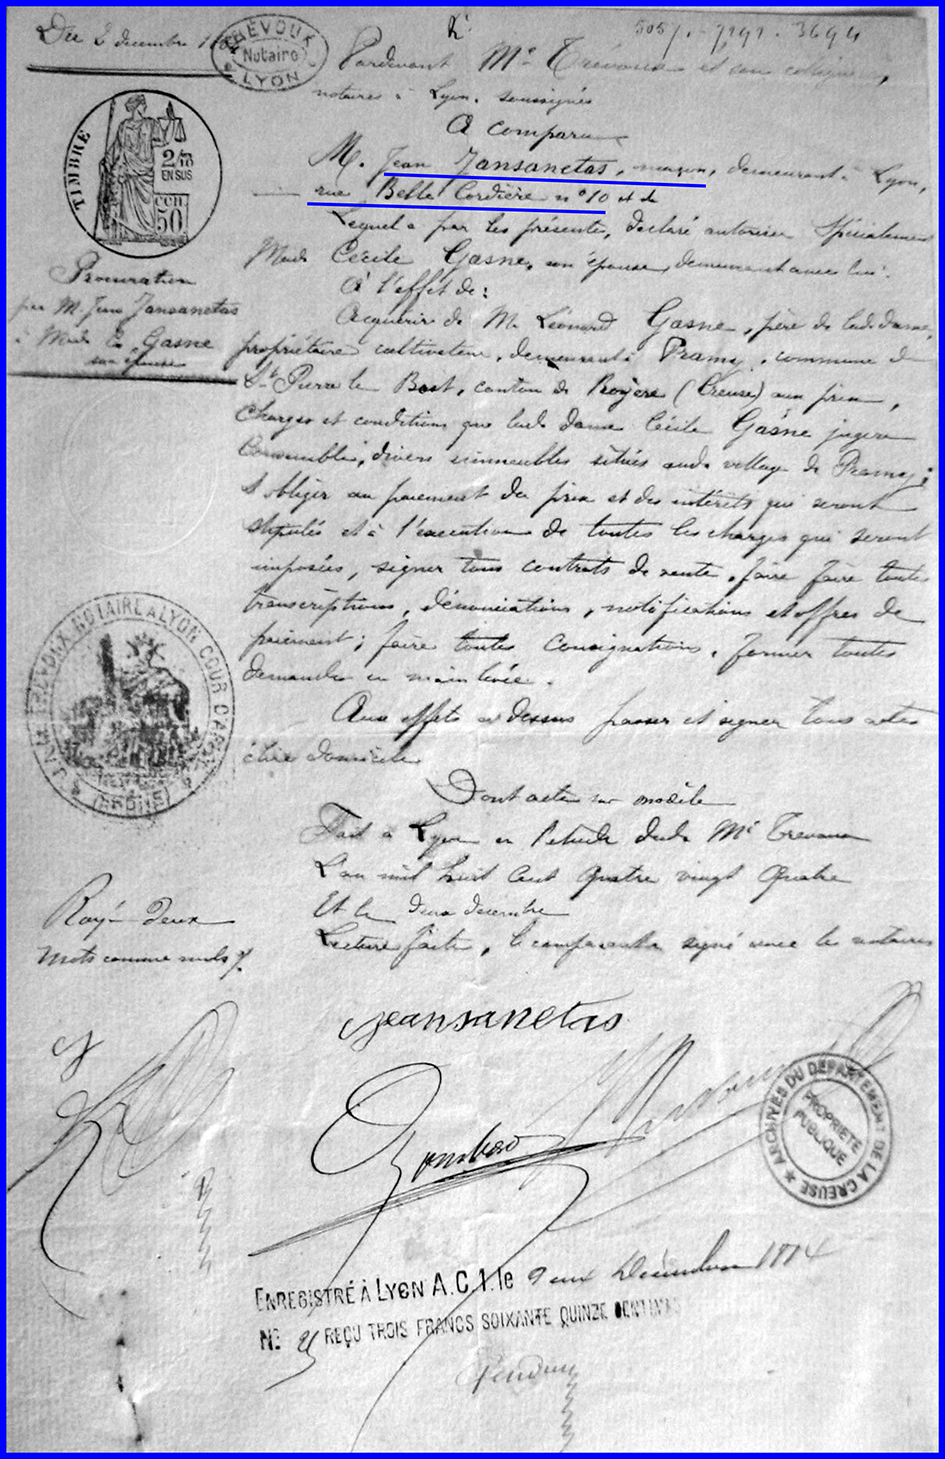 Du 2 décembre
TRÉVOUX
Notaire
LYON
505/. - 7191 . 3694
Pardevant Me Trévoux et son collègue,
notaires à Lyon, soussignés
A comparu
M. Jean Jansanetas, maçon, demeurant à Lyon,
rue Belle Cordière n° 10
Lequel a par les présentes, déclaré autoriser spécialement
Made Cécile Gasne, son épouse, demeurant avec lui.
A l'effet de :
Acquérir de M. Léonard Gasne, père de lad. dame,
propriétaire cultivateur, demeurant à Pramy, commune de
St Pierre le Bost, canton de Royère (Creuse) aux prix,
charges et conditions que lad. dame Cécile Gasne jugera
convenables, divers immeubles situés aud. village de Pramy ;
s'obliger au paiement du prix et des intérêts qui seront
stipulés et à l'exécution de toutes les charges qui seront
imposées, signer tous contrats de vente, faire faire toutes
transcriptions, dénonciations, notifications et offres de
paiement ; faire toutes consignations, former toutes
demandes en main levée.
Aux effets ci dessus passer et signer tous actes
élire domicile
Dont acte sur modèle
Fait à Lyon en l'étude dudt Me Trevoux
L'an mil huit cent quatre vingt quatre
Et le deux décembre
Lecture faite, le comparant a signé avec les notaires
TIMBRE
2/10
EN SUS
CEN
50
Procuration
par M. Jean Jansanetas
à Made Gasne
son épouse
TREVOUX NOTAIRE A LYON COUR D'APPEL
(RHONE)
Rayé deux
mots comme nuls
Jeansanetas
ARCHIVES DU DÉPARTEMENT DE LA CREUSE
PROPRIÉTÉ
PUBLIQUE
ENREGISTRÉ À LYON A.C.1. le deux Décembre 1884
No. RECU TROIS FRANCS SOIXANTE QUINZE CENTIMES